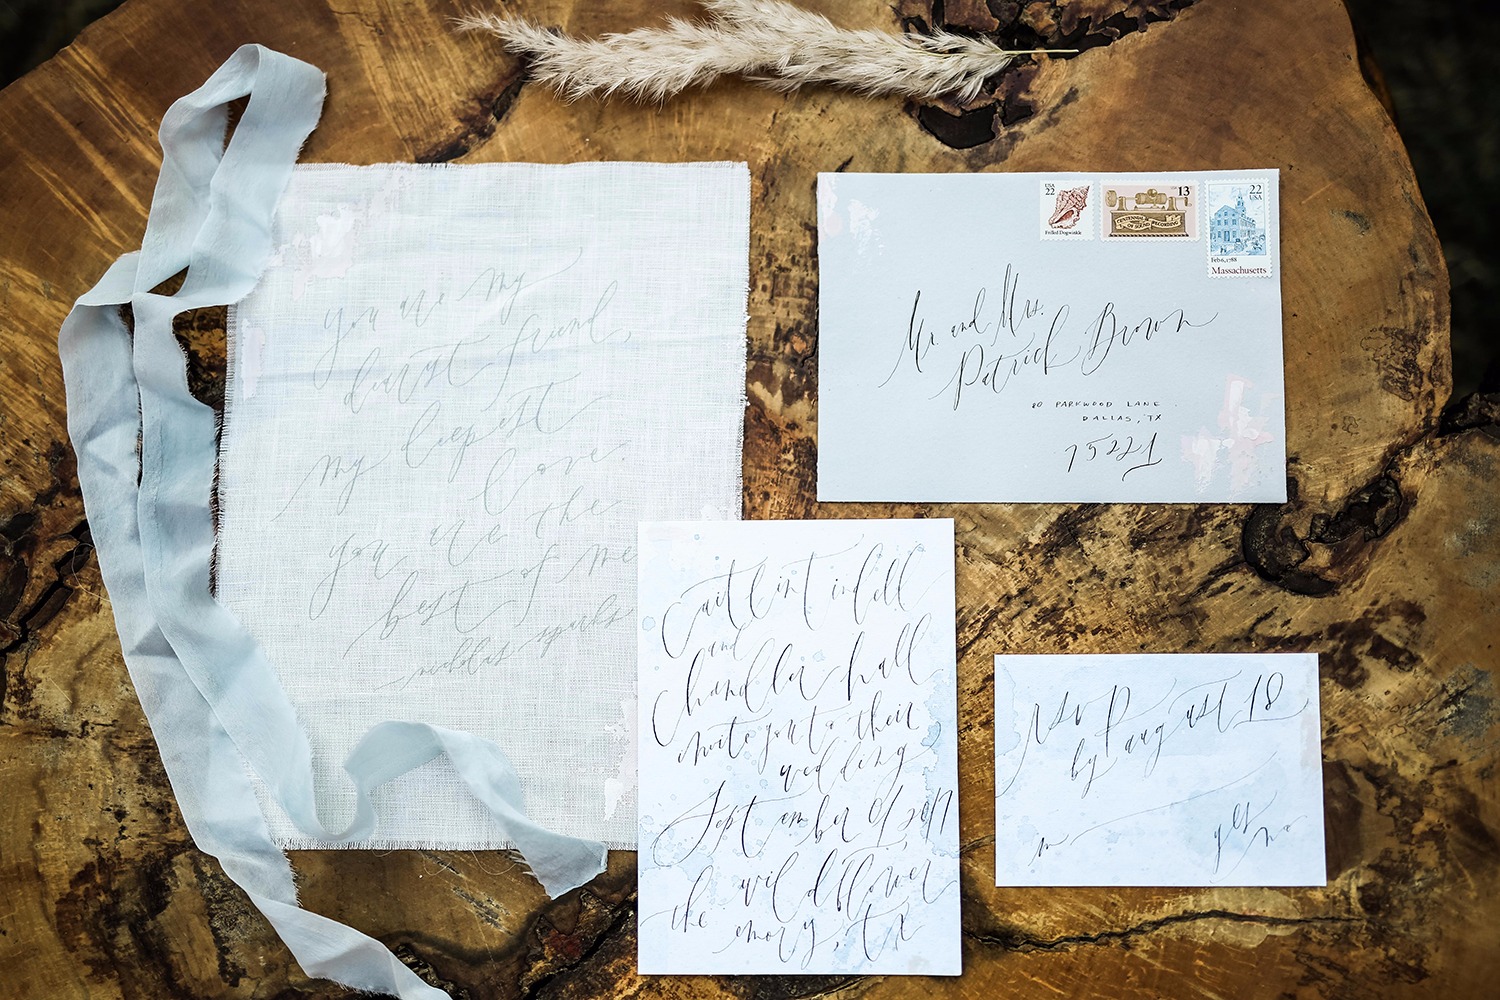 you are my
dearest friend,
my deepest
love.
you are the
best of me
nicholas sparks
USA
22
Frilled Dogwinkle
USA 13
CENTENNIAL
OF SOUND RECORDING
22
USA
Feb 6, 1788
Massachusetts
Mr. and Mrs.
Patrick Brown
80 PARKWOOD LANE
DALLAS, TX
75221
Caitlin
and
Chandler hall
invite you to their
wedding
September 01, 2017
the wildflower
emory, tx
rsvp
by august 18
m
yes
no